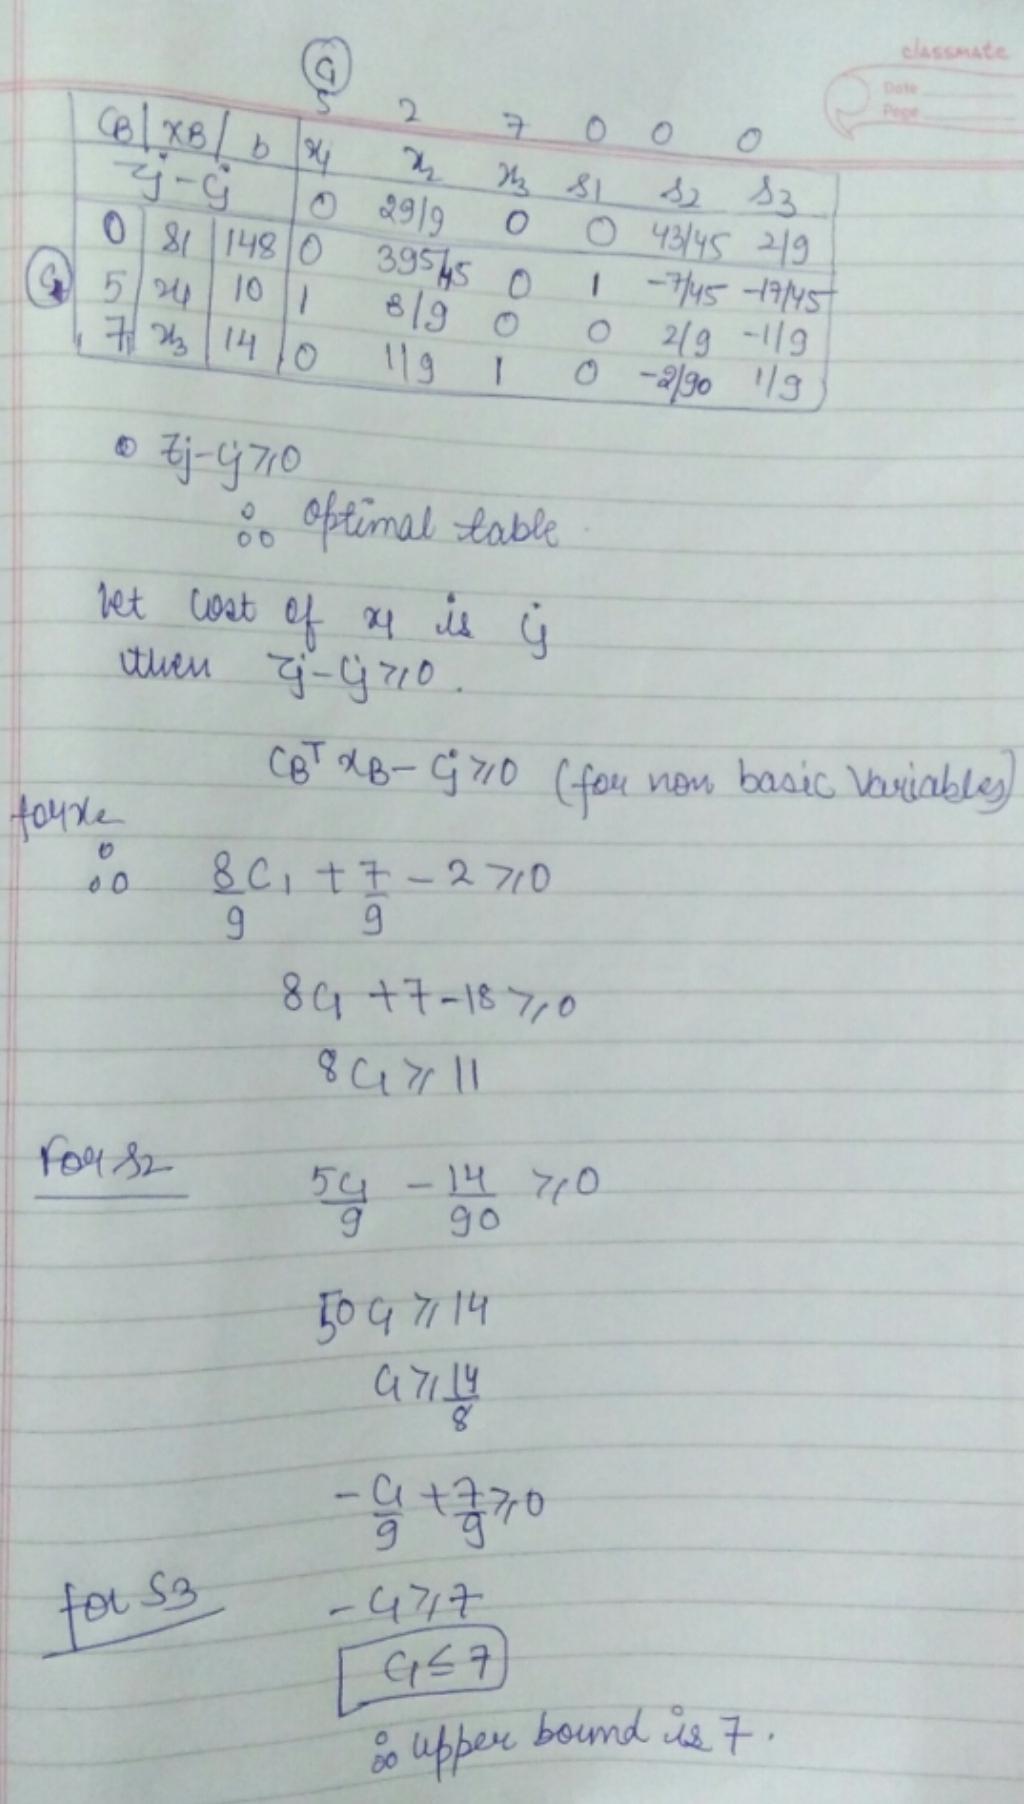 classmate
Date
Page
C1
5 2 7 0 0 0
CB XB b x1 x2 x3 s1 s2 s3
zj-cj 0 29/9 0 0 43/45 2/9
0 s1 148 0 395/45 0 1 -7/45 -17/45
C1 5 x1 10 1 8/9 0 0 2/9 -1/9
7 x3 14 0 1/9 1 0 -2/90 1/9
zj-cj ≥ 0
∴ optimal table
let cost of x1 is cj
then zj-cj ≥ 0.
CB^T XB - cj ≥ 0 (for non basic variables)
for x2
∴ 8/9 C1 + 7/9 - 2 ≥ 0
8C1 + 7 - 18 ≥ 0
8C1 ≥ 11
For s2 5C1/9 - 14/90 ≥ 0
50C1 ≥ 14
C1 ≥ 14/8
-C1/9 + 7/9 ≥ 0
for S3 -C1 ≥ 7
C1 ≤ 7
∴ upper bound is 7.